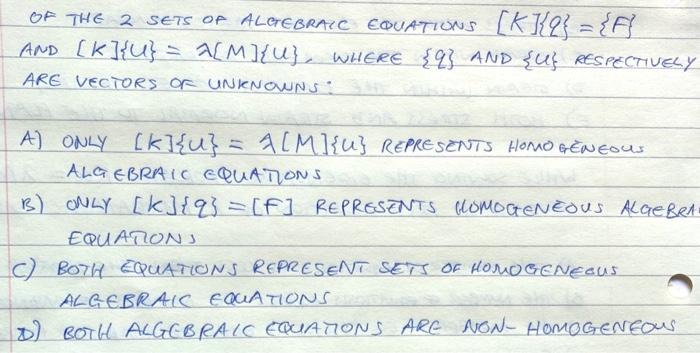 OF THE 2 SETS OF ALGEBRAIC EQUATIONS [K]{q} = {F}
AND [K]{U} = λ[M]{U}, WHERE {q} AND {U} RESPECTIVELY
ARE VECTORS OF UNKNOWNS:
A) ONLY [K]{U} = λ[M]{U} REPRESENTS HOMOGENEOUS
ALGEBRAIC EQUATIONS
B) ONLY [K]{q} = [F] REPRESENTS HOMOGENEOUS ALGEBRA
EQUATIONS
C) BOTH EQUATIONS REPRESENT SETS OF HOMOGENEOUS
ALGEBRAIC EQUATIONS
D) BOTH ALGEBRAIC EQUATIONS ARE NON-HOMOGENEOUS